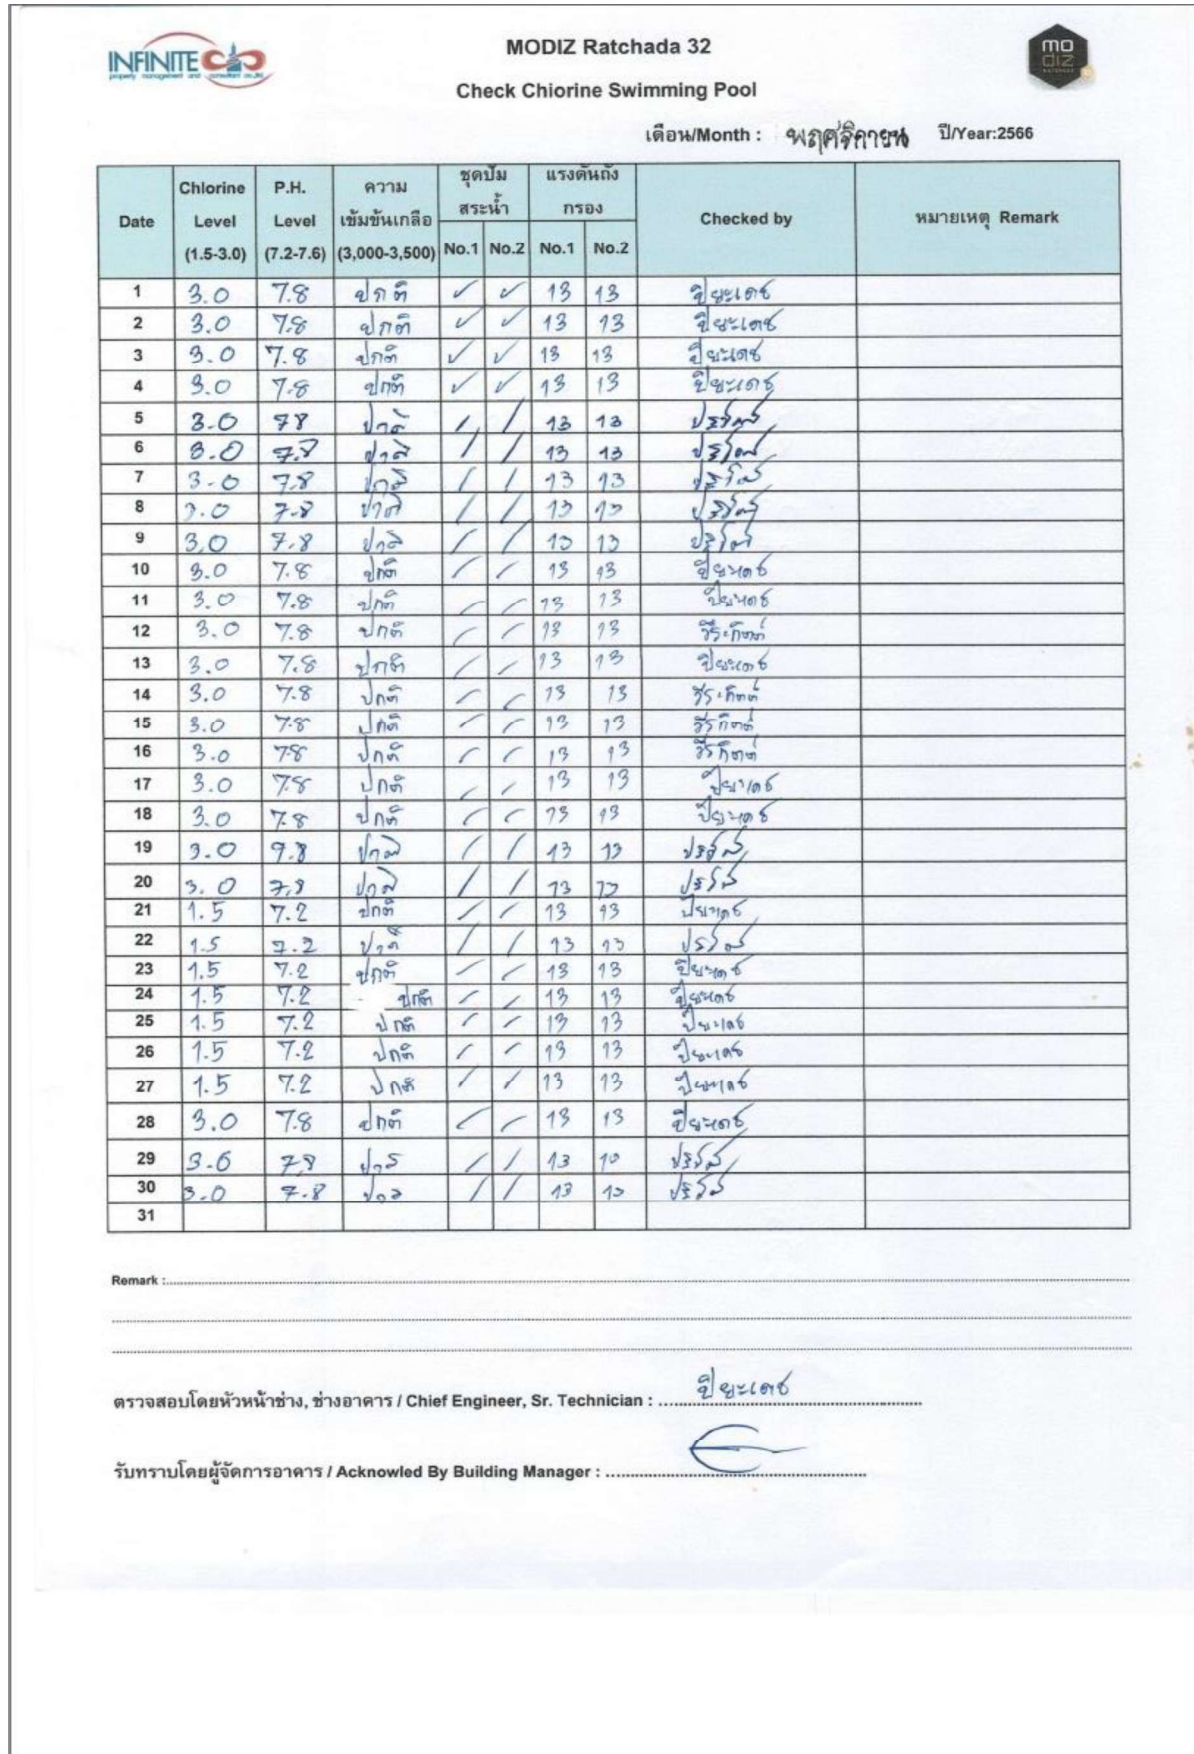 INFINITE
property management and consultant co.,ltd.
MODIZ Ratchada 32
mo
diz
RATCHADA
Check Chiorine Swimming Pool
เดือน/Month : พฤศจิกายน ปี/Year:2566
Date Chlorine Level (1.5-3.0) P.H. Level (7.2-7.6) ความเข้มข้นเกลือ (3,000-3,500) ชุดปั๊มสระน้ำ No.1 No.2 แรงดันถังกรอง No.1 No.2 Checked by หมายเหตุ Remark
1 3.0 7.8 ปกติ ✓ ✓ 13 13 ปิยะเดช
2 3.0 7.8 ปกติ ✓ ✓ 13 13 ปิยะเดช
3 3.0 7.8 ปกติ ✓ ✓ 13 13 ปิยะเดช
4 3.0 7.8 ปกติ ✓ ✓ 13 13 ปิยะเดช
5 3.0 78 ปกติ / / 13 13
6 3.0 7.8 ปกติ / / 13 13
7 3.0 7.8 ปกติ / / 13 13
8 3.0 7.8 ปกติ / / 13 13
9 3.0 7.8 ปกติ / / 13 13
10 3.0 7.8 ปกติ / / 13 13 ปิยะเดช
11 3.0 7.8 ปกติ / / 13 13 ปิยะเดช
12 3.0 7.8 ปกติ / / 13 13 วีระกิตต์
13 3.0 7.8 ปกติ / / 13 13 ปิยะเดช
14 3.0 7.8 ปกติ / / 13 13 วีระกิตต์
15 3.0 7.8 ปกติ / / 13 13 วีรกิตต์
16 3.0 78 ปกติ / / 13 13 วีรกิตต์
17 3.0 7.8 ปกติ / / 13 13 ปิยะเดช
18 3.0 7.8 ปกติ / / 13 13 ปิยะเดช
19 3.0 7.8 ปกติ / / 13 13
20 3.0 7.8 ปกติ / / 13 13
21 1.5 7.2 ปกติ / / 13 13 ปิยะเดช
22 1.5 7.2 ปกติ / / 13 13
23 1.5 7.2 ปกติ / / 13 13 ปิยะเดช
24 1.5 7.2 ปกติ / / 13 13 ปิยะเดช
25 1.5 7.2 ปกติ / / 13 13 ปิยะเดช
26 1.5 7.2 ปกติ / / 13 13 ปิยะเดช
27 1.5 7.2 ปกติ / / 13 13 ปิยะเดช
28 3.0 7.8 ปกติ / / 13 13 ปิยะเดช
29 3.0 78 ปกติ / / 13 13
30 3.0 7.8 ปกติ / / 13 13
31
Remark :
ตรวจสอบโดยหัวหน้าช่าง, ช่างอาคาร / Chief Engineer, Sr. Technician : ปิยะเดช
รับทราบโดยผู้จัดการอาคาร / Acknowled By Building Manager :